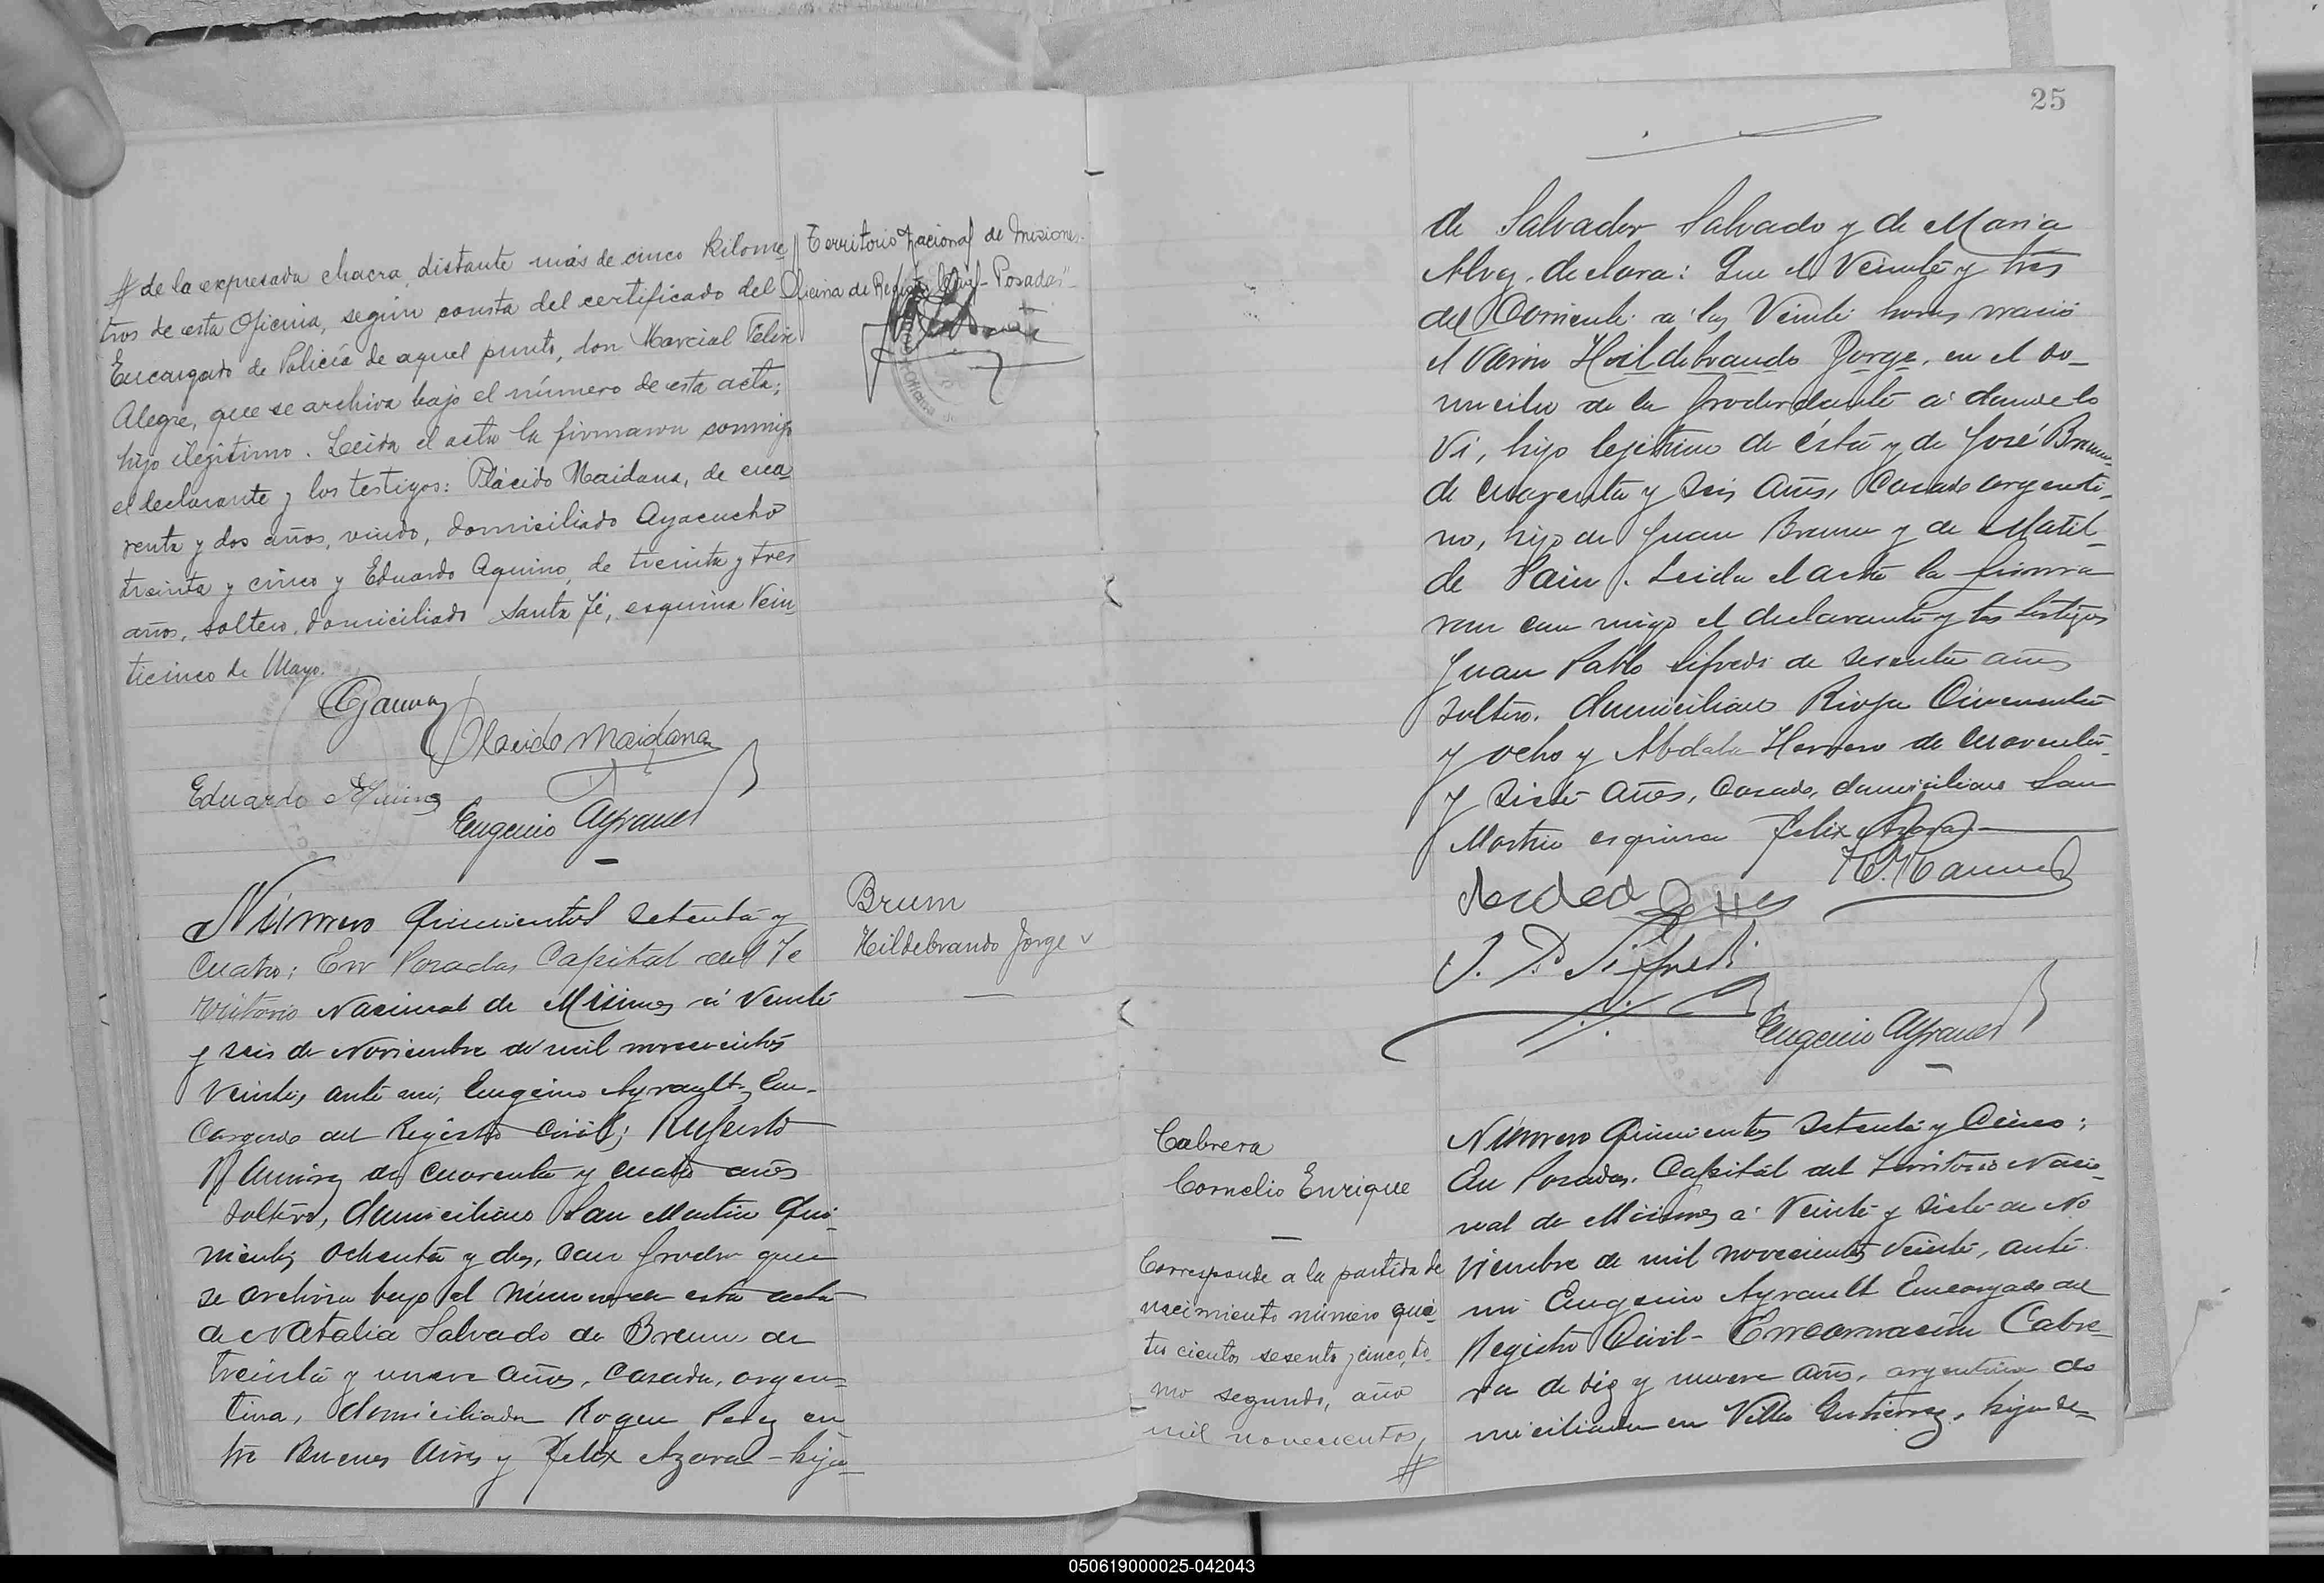 # de la expresada chacra, distante más de cinco kilome
tros de esta Oficina, según consta del certificado del
Encargado de Policía de aquel punto, don Marcial Felix
Alegre, que se archiva bajo el número de esta acta;
hijo ilegitimo. Leida el acta la firmaron conmigo
el declarante y los testigos: Plácido Maidana, de cua
renta y dos años, viudo, domiciliado Ayacucho
treinta y cinco y Eduardo Aquino, de treinta y tres
años, soltero, domiciliado Santa Fé, esquina Vein
ticinco de Mayo.
Territorio Nacional de Misiones
Oficina de Registro Civil - Posadas
Placido Maidana
Eduardo Aquino
Eugenio Ayrault
Número Quinientos Setenta y
Cuatro; En Posadas, Capital del Te
rritorio Nacional de Misiones á Veinte
y seis de Noviembre de mil novecientos
Veinte, ante mi, Eugenio Ayrault, En-
cargado del Registro Civil; Ruperto
Ramirez de cuarenta y cuatro años
Soltero, domiciliado San Martin Qui-
nientos ochenta y dos, con poder que
se archiva bajo el número de esta acta
de Natalia Salvado de Brum de
treinta y nueve años, casada, argen-
tina, domiciliada Roque Perez en
tre Buenos Aires y Felix Azara - hija
Brum
Hildebrando Jorge
25
de Salvador Salvado y de Maria
Alvez, declara: Que el Veinte y tres
del Corriente a las Veinte horas nació
el Varón Hildebrando Jorge, en el do-
micilio de la poderdante a donde lo
Vi, hijo legitimo de ésta y de José Brum
de cuarenta y seis años, Casado argenti-
no, hijo de Juan Brum y de Matil-
de Pain. Leida el acta la firma
ron con migo el declarante y los testigos
Juan Pablo Sifredi de sesenta años
Soltero, domiciliado Rioja Cincuenta
y ocho y Abdala Herrero de cuarenta
y siete años, Casado, domiciliado San
Martin esquina Felix Azara
J. P. Sifredi
Eugenio Ayrault
Cabrera
Cornelio Enrique
Corresponde a la partida de
nacimiento número qui
tos cientos sesenta y cinco, to
mo segundo, año
mil novecientos
#
Número Quinientos Setenta y Cinco;
En Posadas, Capital del Territorio Nacio-
nal de Misiones a Veinte y siete de No
viembre de mil novecientos veinte, ante
mi Eugenio Ayrault Encargado del
Registro Civil - Encarnación Cabre-
ra de diez y nueve años, argentina do
miciliada en Villa Gutierrez, hija de
050619000025-042043